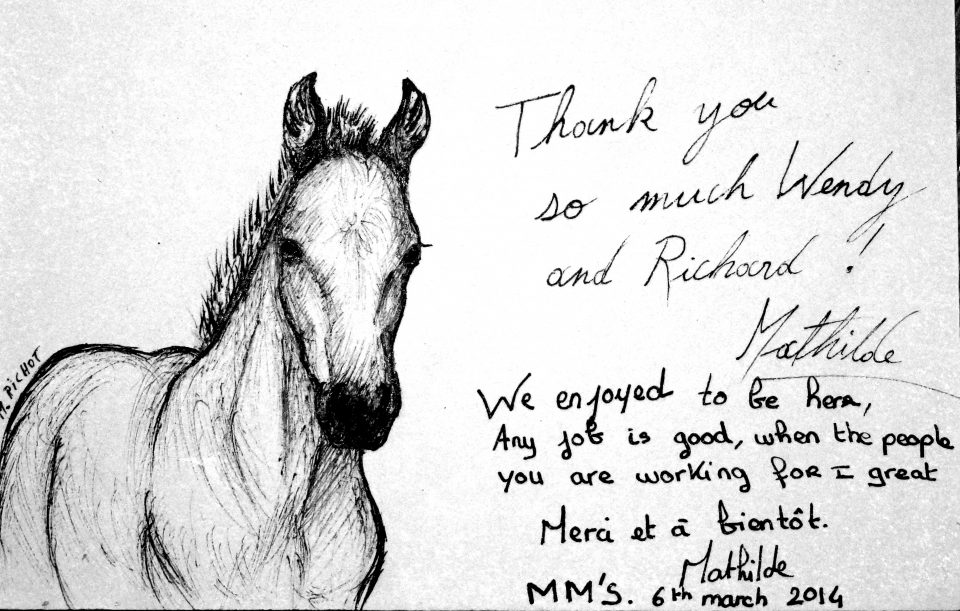 Thank you
so much Wendy
and Richard !
Mathilde
M. PiCHOT
We enjoyed to be here,
Any job is good, when the people
you are working for I great
Merci et à bientôt.
Mathilde
MM'S. 6th march 2014